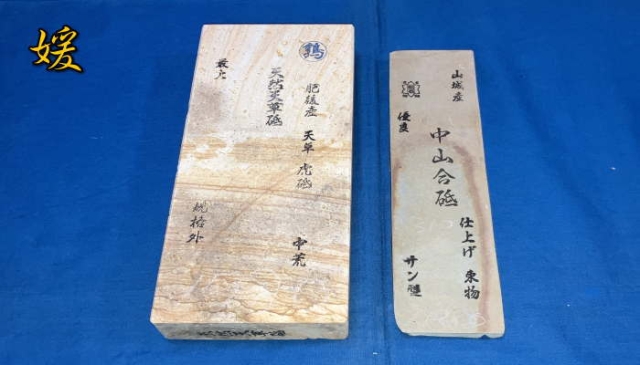 媛
鶏
最上
天然天草砥
肥後産 天草 虎砥
規格外
中荒
山城産
優良
中山合砥
仕上げ 東物